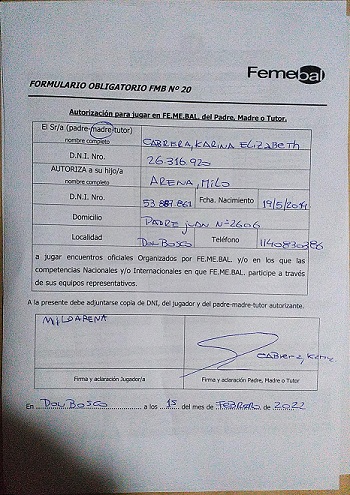 Femebal
FORMULARIO OBLIGATORIO FMB Nº 20
Autorización para jugar en FE.ME.BAL. del Padre, Madre o Tutor.
El Sr/a (padre-madre-tutor)
nombre completo
CABRERA, KARINA ELIZABETH
D.N.I. Nro.
26.316.920
AUTORIZA a su hijo/a
nombre completo
ARENA, MILO
D.N.I. Nro.
53.887.861
Fcha. Nacimiento
19/5/2014
Domicilio
PADRE JUAN Nº2606
Localidad
DON BOSCO
Teléfono
1140830386
a jugar encuentros oficiales Organizados por FE.ME.BAL. y/o en los que las
competencias Nacionales y/o Internacionales en que FE.ME.BAL. participe a través
de sus equipos representativos.
A la presente debe adjuntarse copia de DNI, del jugador y del padre-madre-tutor autorizante.
MILO ARENA
CABRERA, KARINA
Firma y aclaración Jugador/a
Firma y aclaración Padre, Madre o Tutor
En DON BOSCO a los 15 del mes de FEBRERO de 2022